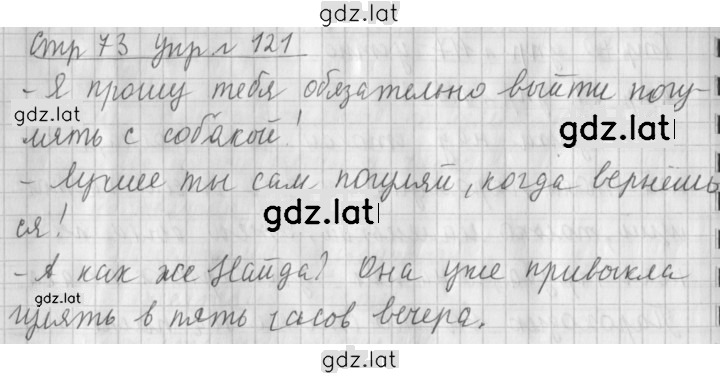 gdz.lat
Стр 73 упр № 121
- Я прошу тебя обязательно выйти погу-
gdz.lat
лять с собакой!
gdz.lat
- Лучше ты сам погуляй, когда вернёшь
gdz.lat
ся!
- А как же Найда? Она уже привыкла
gdz.lat
гулять в пять часов вечера.
gdz.lat